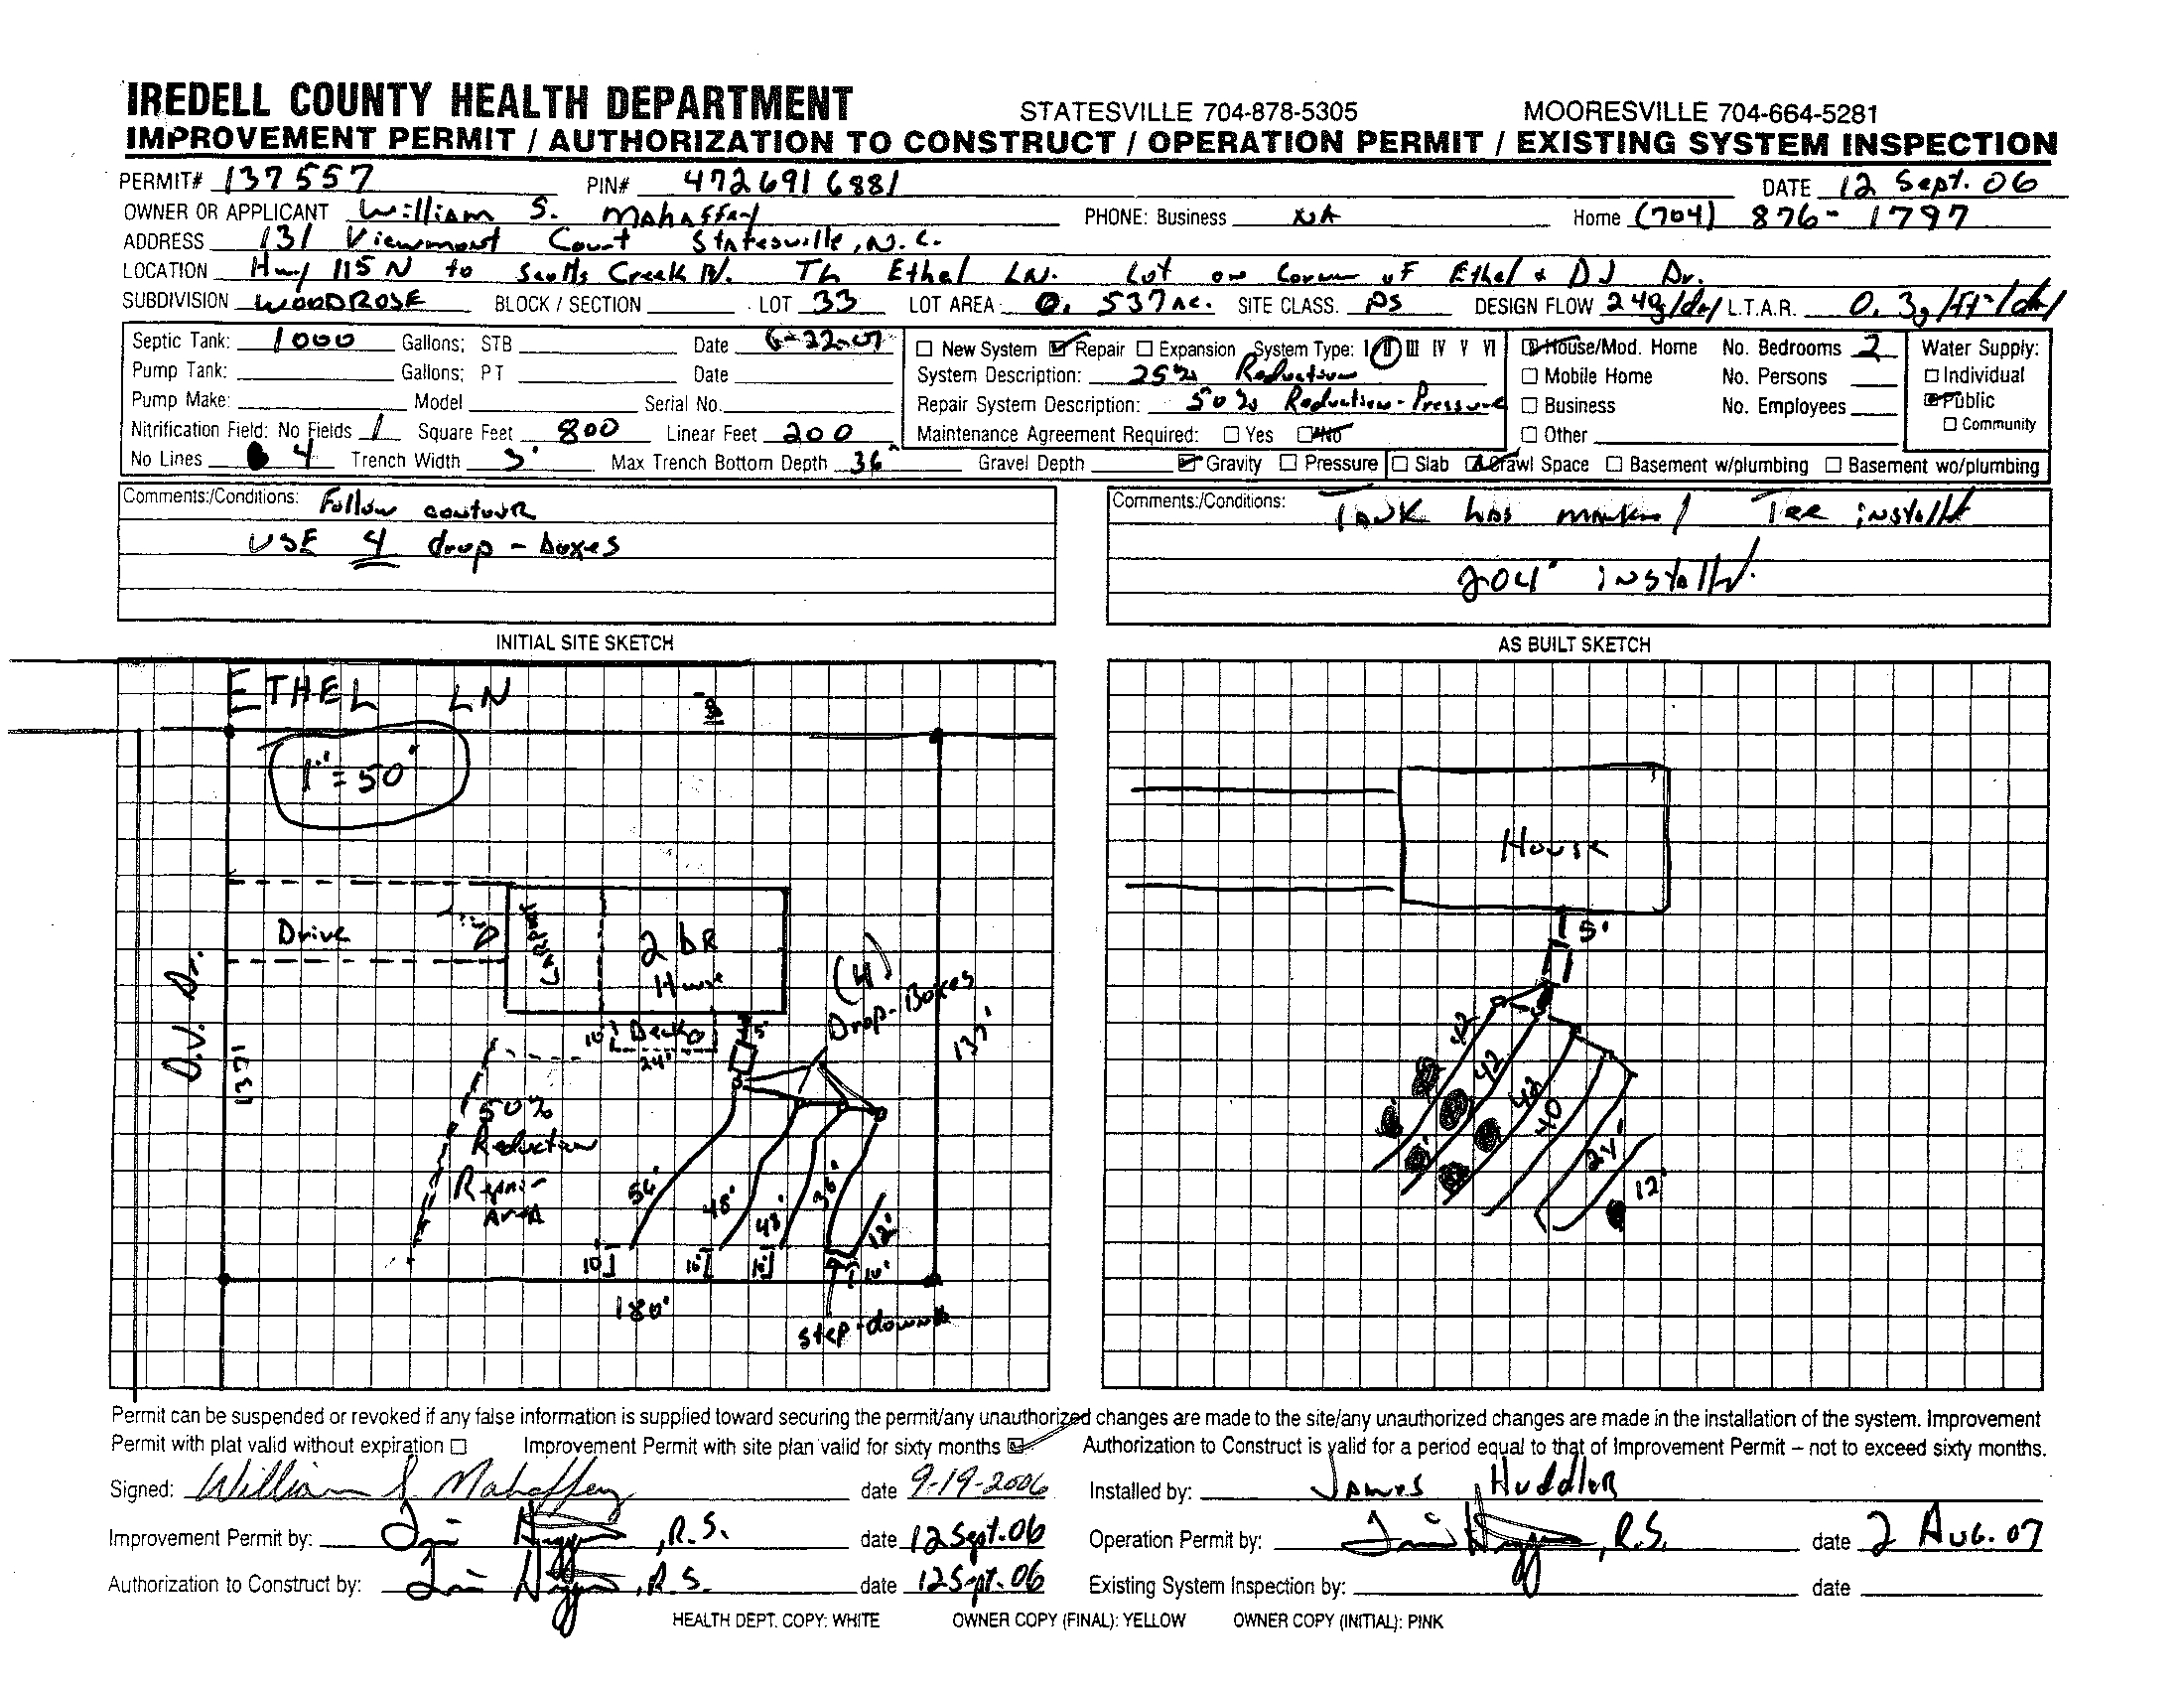 IREDELL COUNTY HEALTH DEPARTMENT STATESVILLE 704-878-5305 MOORESVILLE 704-664-5281
IMPROVEMENT PERMIT / AUTHORIZATION TO CONSTRUCT / OPERATION PERMIT / EXISTING SYSTEM INSPECTION
PERMIT# 137557 PIN# 4726916881 DATE 12 Sept. 06
OWNER OR APPLICANT William S. Mahaffey PHONE: Business NA Home (704) 876-1797
ADDRESS 131 Viewmont Court Statesville, N.C.
LOCATION Hwy 115 N to Scotts Creek Rd. TL Ethel LN. Lot on Corner of Ethel & DJ Dr.
SUBDIVISION WOODROSE BLOCK / SECTION LOT 33 LOT AREA 0.537 Ac. SITE CLASS. PS DESIGN FLOW L.T.A.R.
Septic Tank: 1000 Gallons; STB Date 6-22-07
Pump Tank: Gallons; PT Date
Pump Make: Model Serial No.
Nitrification Field: No Fields 1 Square Feet 800 Linear Feet 200
No Lines 4 Trench Width 3' Max Trench Bottom Depth 36" Gravel Depth Gravity Pressure
New System Repair Expansion System Type: I II III IV V VI
System Description: 25% Reduction
Repair System Description: 50% Reduction-Pressure
Maintenance Agreement Required: Yes No
House/Mod. Home No. Bedrooms 2
Mobile Home No. Persons
Business No. Employees
Other
Slab Crawl Space Basement w/plumbing Basement wo/plumbing
Water Supply:
Individual
Public
Community
Comments:/Conditions: Follow contour
USE 4 drop-boxes
Comments:/Conditions: Tank has Tee
204' installd.
INITIAL SITE SKETCH
ETHEL LN
1"=50'
Drive
Carport
2 bR
House
(4)
Drop-Boxes
10' Deck 5'
24'
137'
137'
50%
Reduction
Repair
Area
56' 48' 48' 36' 12'
10' 10' 10'
180'
step-down
AS BUILT SKETCH
House
5'
42 42 40 24' 12'
Permit can be suspended or revoked if any false information is supplied toward securing the permit/any unauthorized changes are made to the site/any unauthorized changes are made in the installation of the system. Improvement
Permit with plat valid without expiration Improvement Permit with site plan valid for sixty months Authorization to Construct is valid for a period equal to that of Improvement Permit – not to exceed sixty months.
Signed: William S. Mahaffey date 9-19-2006 Installed by: James Huddler
Improvement Permit by: , R.S. date 12 Sept. 06 Operation Permit by: , R.S. date 2 Aug. 07
Authorization to Construct by: , R.S. date 12 Sept. 06 Existing System Inspection by: date
HEALTH DEPT. COPY: WHITE OWNER COPY (FINAL): YELLOW OWNER COPY (INITIAL): PINK